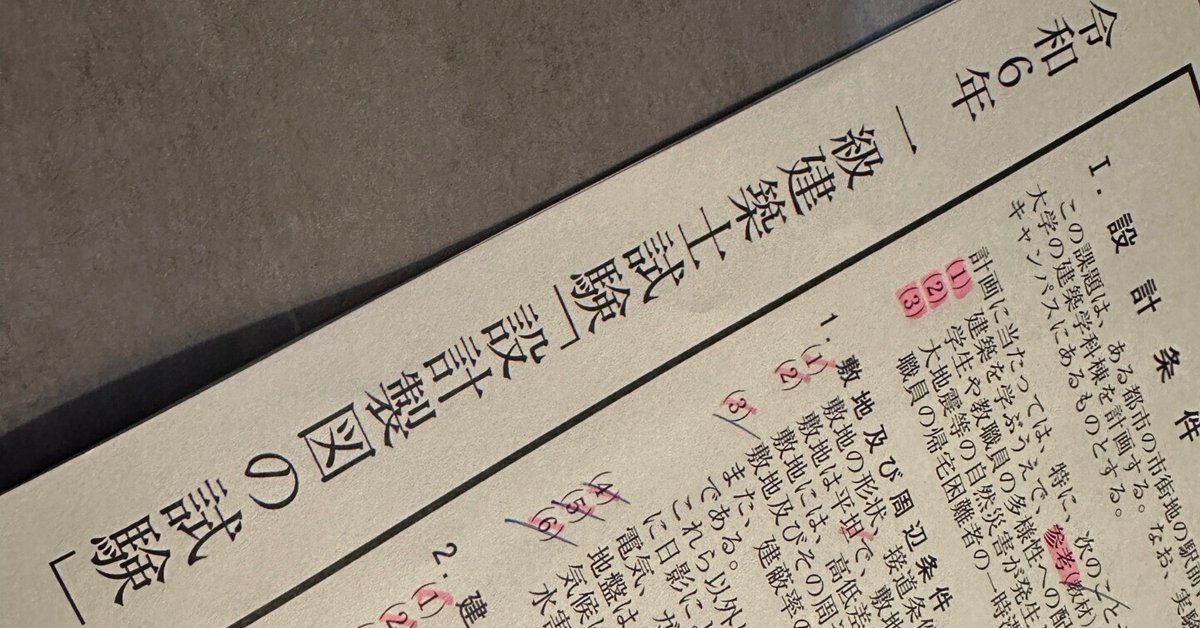 令和6年 一級建築士試験「設計製図の試験」
I. 設計条件
この課題は、ある都市の市街地の駅前
大学の建築学科棟を計画する。なお、実験
キャンパスにあるものとする。
計画に当たっては、特に、次のこと
(1) 建築を学ぶうえで、参考(教材)
(2) 学生や教職員の多様性への配
(3) 大地震等の自然災害が発生
職員の帰宅困難者の一時
1. 敷地及び周辺条件
(1) 敷地の形状、接道条件
(2) 敷地は平坦で、高低差
(3) 敷地には、
敷地及びその周
また、建蔽率の
である。
これら以外
に日影に
(4) 電気、ガ
(5) 地盤は
(6) 気候
水害
2. 建
(1)
(2)